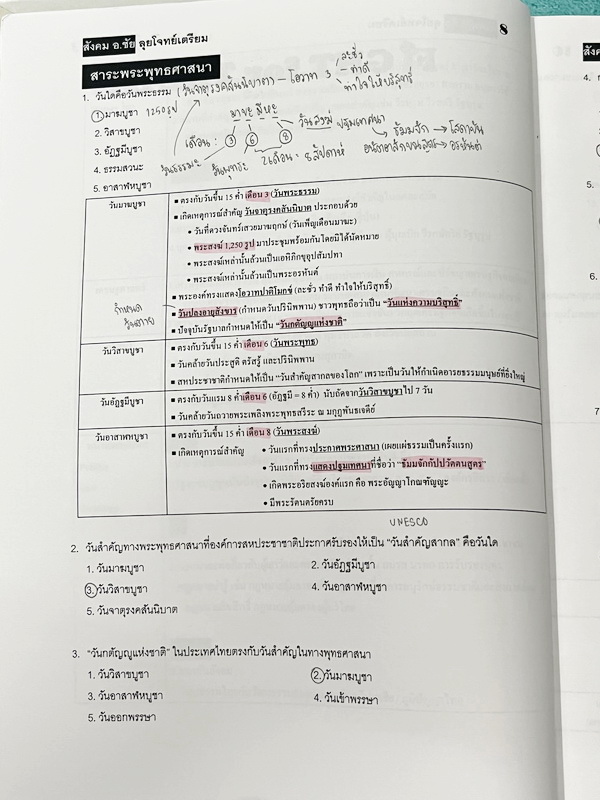 สังคม อ.ชัย ลุยโจทย์เตรียม
8
สาระพระพุทธศาสนา
1. วันใดคือวันพระธรรม (วันจาตุรงคสันนิบาต) - โอวาท 3
ละชั่ว
ทำดี
ทำใจให้บริสุทธิ์
1. มาฆบูชา 1250 รูป
2. วิสาขบูชา
3. อัฏฐมีบูชา
4. ธรรมสวนะ
5. อาสาฬหบูชา
มาฆะมีหะ
เดือน : 3 6 8
วันสงฆ์ ปฐมเทศนา
ธัมมจัก → โสดาบัน
วันธรรมะ วันพุทธะ 2 เดือน : 8 สัปดาห์
วันมาฆบูชา
■ ตรงกับวันขึ้น 15 ค่ำ เดือน 3 (วันพระธรรม)
■ เกิดเหตุการณ์สำคัญ วันจาตุรงคสันนิบาต ประกอบด้วย
• วันที่ดวงจันทร์เสวยมาฆฤกษ์ (วันเพ็ญเดือนมาฆะ)
• พระสงฆ์ 1,250 รูป มาประชุมพร้อมกันโดยมิได้นัดหมาย
• พระสงฆ์เหล่านั้นล้วนเป็นเอหิภิกขุอุปสัมปทา
• พระสงฆ์เหล่านั้นล้วนเป็นพระอรหันต์
■ พระองค์ทรงแสดงโอวาทปาติโมกข์ (ละชั่ว ทำดี ทำใจให้บริสุทธิ์)
■ วันปลงอายุสังขาร (กำหนดวันปรินิพพาน) ชาวพุทธถือว่าเป็น "วันแห่งความบริสุทธิ์"
■ ปัจจุบันรัฐบาลกำหนดให้เป็น "วันกตัญญูแห่งชาติ"
กำหนด
วันตาย
วันวิสาขบูชา
■ ตรงกับวันขึ้น 15 ค่ำ เดือน 6 (วันพระพุทธ)
■ วันคล้ายวันประสูติ ตรัสรู้ และปรินิพพาน
■ สหประชาชาติกำหนดให้เป็น "วันสำคัญสากลของโลก" เพราะเป็นวันให้กำเนิดอารยธรรมมนุษย์ที่ยิ่งใหญ่
วันอัฏฐมีบูชา
■ ตรงกับวันแรม 8 ค่ำ เดือน 6 (อัฏฐมี = 8 ค่ำ) นับถัดจากวันวิสาขบูชาไป 7 วัน
■ วันคล้ายวันถวายพระเพลิงพระพุทธสรีระ ณ มกุฏพันธเจดีย์
วันอาสาฬหบูชา
■ ตรงกับวันขึ้น 15 ค่ำ เดือน 8 (วันพระสงฆ์)
■ เกิดเหตุการณ์สำคัญ • วันแรกที่ทรงประกาศพระศาสนา (เผยแผ่ธรรมเป็นครั้งแรก)
• วันแรกที่ทรงแสดงปฐมเทศนาที่ชื่อว่า "ธัมมจักกัปปวัตตนสูตร"
• เกิดพระอริยสงฆ์องค์แรก คือ พระอัญญาโกณฑัญญะ
• มีพระรัตนตรัยครบ
UNESCO
2. วันสำคัญทางพระพุทธศาสนาที่องค์การสหประชาชาติประกาศรับรองให้เป็น "วันสำคัญสากล" คือวันใด
1. วันมาฆบูชา 2. วันอัฏฐมีบูชา
3. วันวิสาขบูชา 4. วันอาสาฬหบูชา
5. วันจาตุรงคสันนิบาต
3. "วันกตัญญูแห่งชาติ" ในประเทศไทยตรงกับวันสำคัญในทางพุทธศาสนา
1. วันวิสาขบูชา 2. วันมาฆบูชา
3. วันอาสาฬหบูชา 4. วันเข้าพรรษา
5. วันออกพรรษา